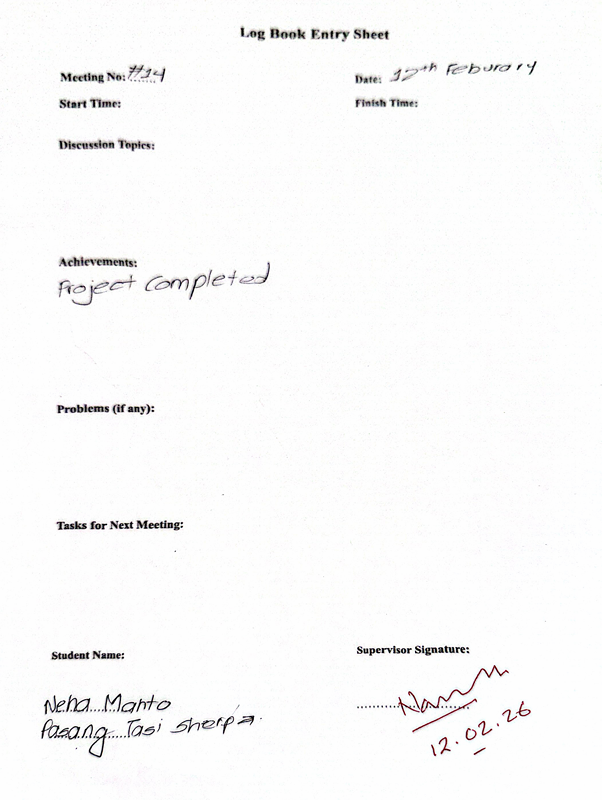 Log Book Entry Sheet
Meeting No: #14
Date: 12th Feburary
Start Time:
Finish Time:
Discussion Topics:
Achievements:
Project Completed
Problems (if any):
Tasks for Next Meeting:
Student Name:
Supervisor Signature:
Neha Mahto
Pasang Tasi Sherpa
12.02.26